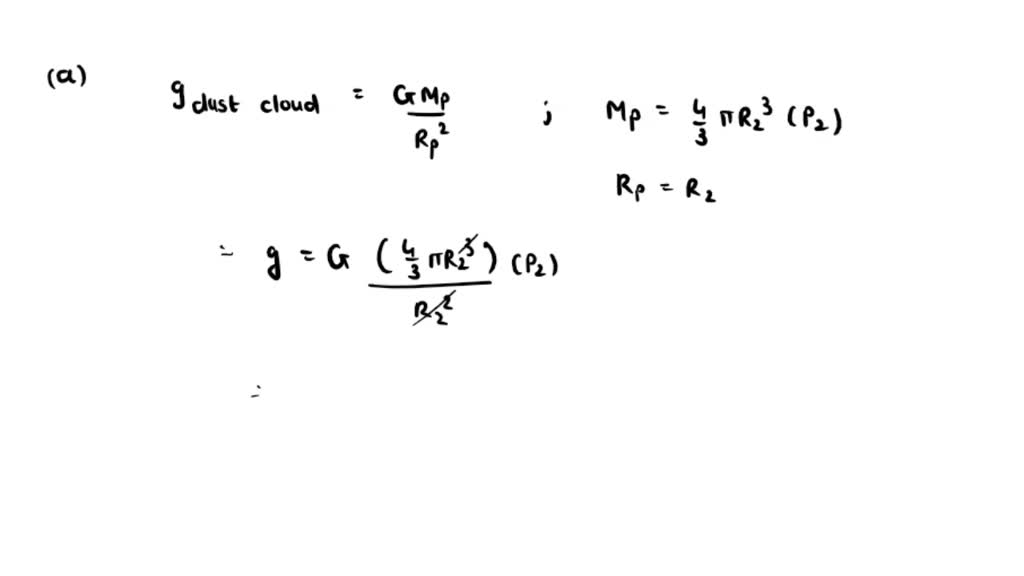 (a) g dust cloud = G Mp / Rp² ; Mp = 4/3 π R₂³ (P₂)
Rp = R₂
= g = G (4/3 π R₂³) (P₂) / R₂²
=